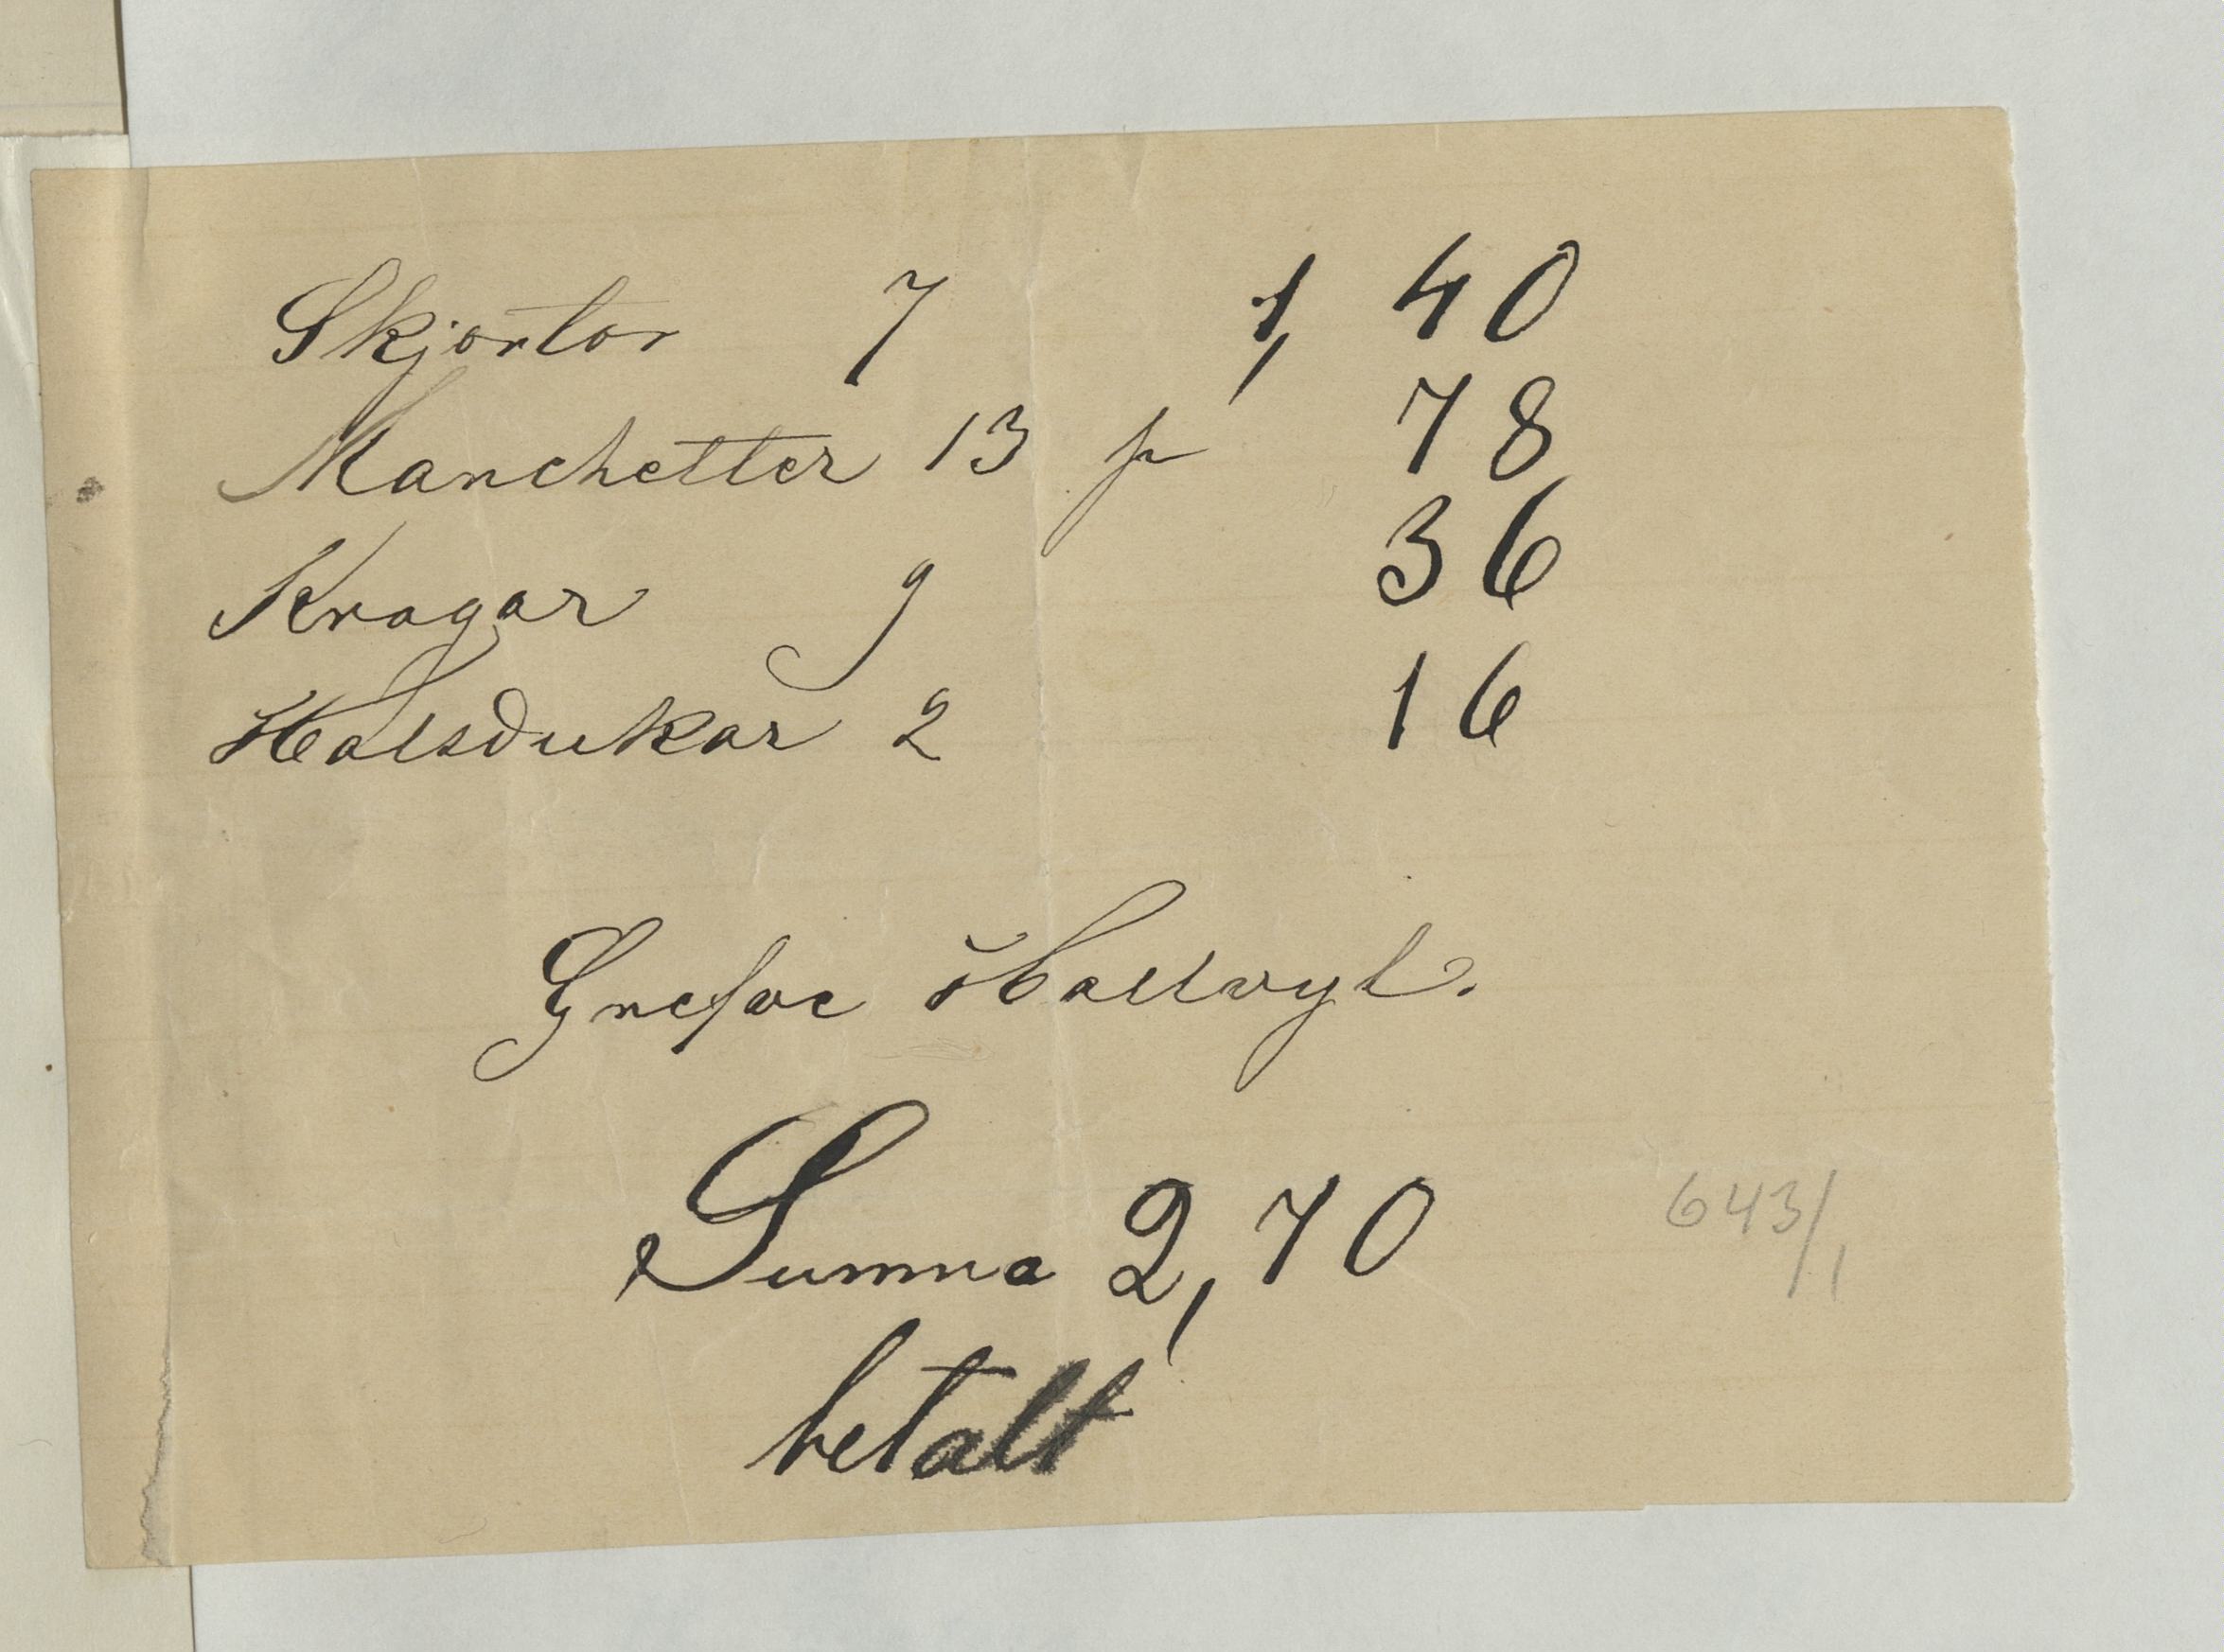 Skjortor 7 1,40
Manchetter 13 p 78
Kragar 9 36
Halsdukar 2 16
Grefve Hallvyl.
Summa 2,70
betalt
643/1